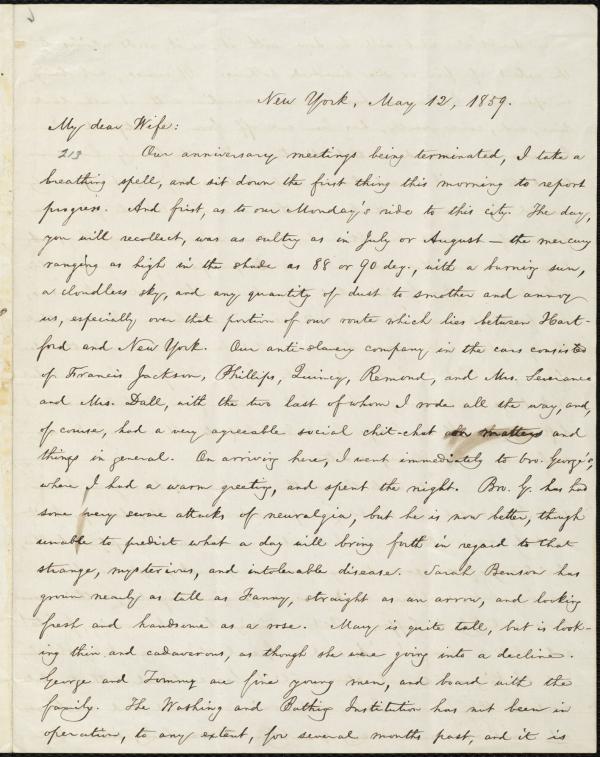 New York, May 12, 1859.
My dear Wife:
213 Our anniversary meetings being terminated, I take a
breathing spell, and sit down the first thing this morning to report
progress. And first, as to our Monday's ride to this city. The day,
you will recollect, was as sultry as in July or August — the mercury
ranging as high in the shade as 88 or 90 deg., with a burning sun,
a cloudless sky, and any quantity of dust to smother and annoy
us, especially over that portion of our route which lies between Hart-
ford and New York. Our anti-slavery company in the cars consisted
of Francis Jackson, Phillips, Quincy, Remond, and Mrs. Severance
and Mrs. Dall, with the two last of whom I rode all the way, and,
of course, had a very agreeable social chit-chat on matters and
things in general. On arriving here, I went immediately to bro. George's,
where I had a warm greeting, and spent the night. Bro. G. has had
some very severe attacks of neuralgia, but he is now better, though
unable to predict what a day will bring forth in regard to that
strange, mysterious, and intolerable disease. Sarah Benson has
grown nearly as tall as Fanny, straight as an arrow, and looking
fresh and handsome as a rose. Mary is quite tall, but is look-
ing thin and cadaverous, as though she were going into a decline.
George and Tommy are fine young men, and board with the
family. The Washing and Bathing Institution has not been in
operation, to any extent, for several months past, and it is